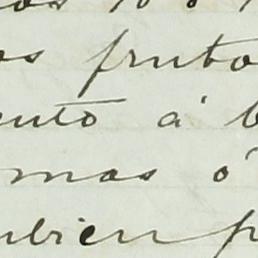 os fruto
ento á
mas ó
mbien p